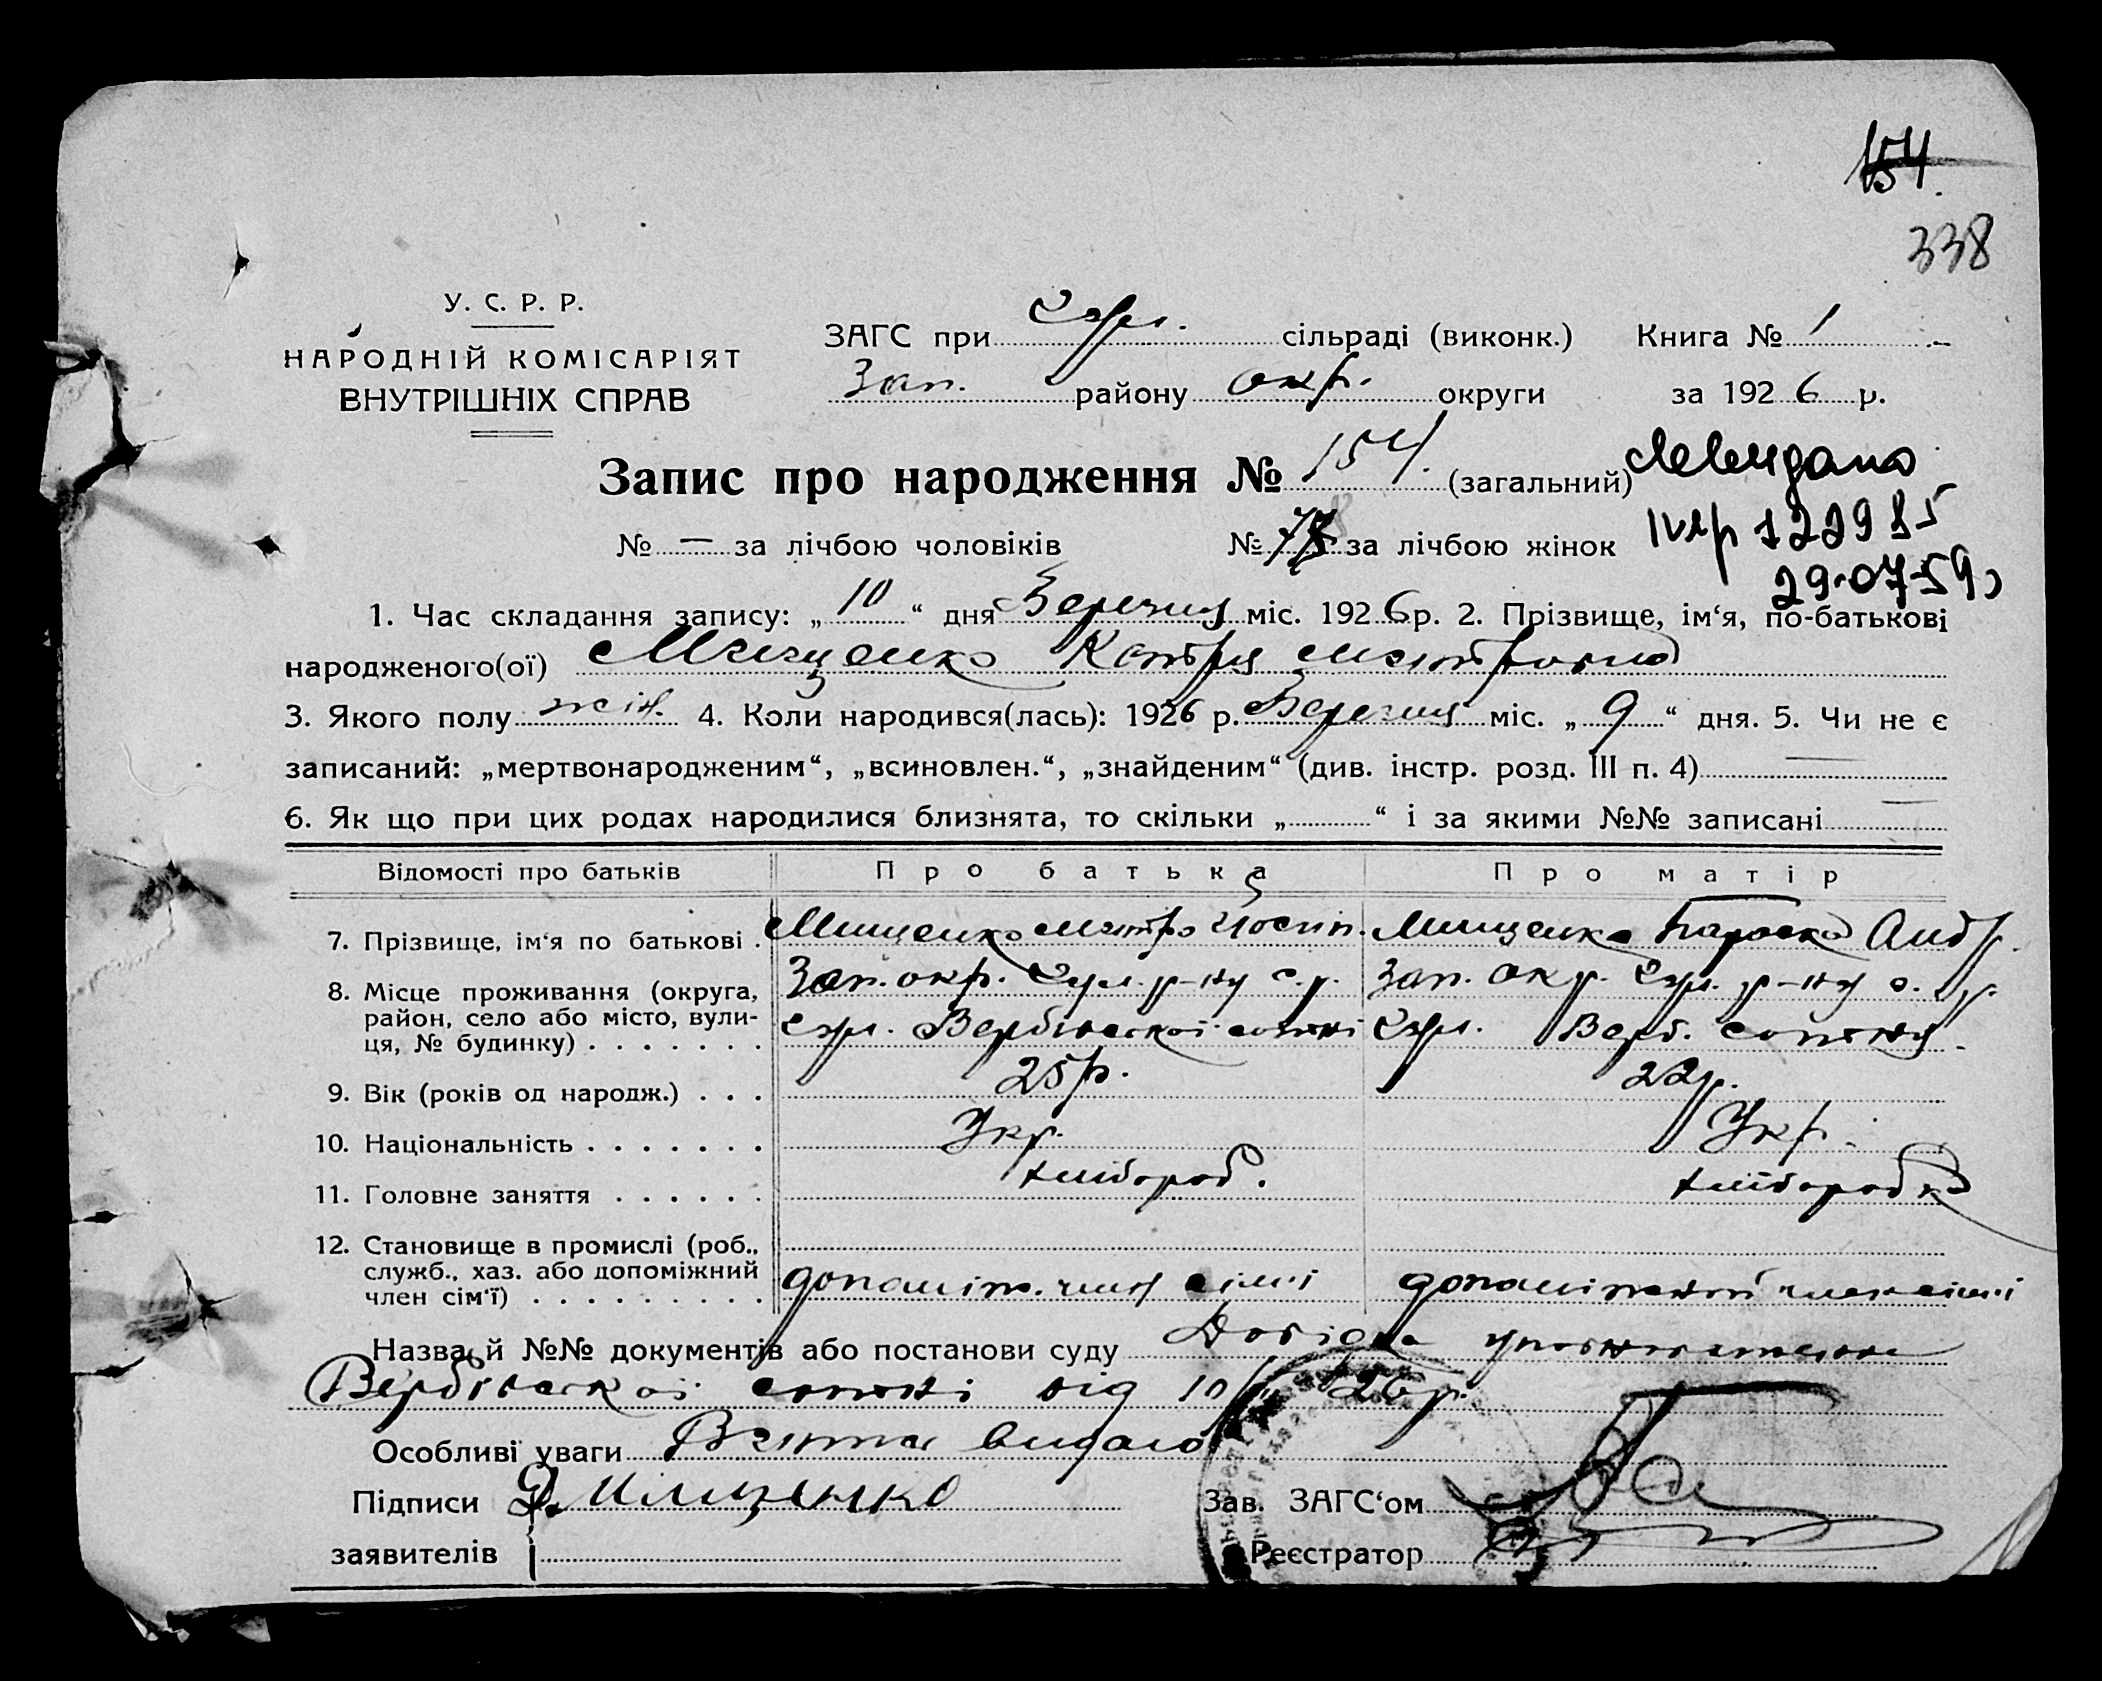 154.
338
У. С. Р. Р.
НАРОДНІЙ КОМІСАРІЯТ
ВНУТРІШНІХ СПРАВ
ЗАГС при сільраді (виконк.) Книга № 1
Зап. району окр. округи за 1926 р.
Запис про народження № 154. (загальний)
№ — за лічбою чоловіків № за лічбою жінок
29.07.59
1. Час складання запису: „10“ дня Березня міс. 1926 р. 2. Прізвище, ім‘я, по-батькові
народженого(ої) Мищенко Катря
3. Якого полу жін. 4. Коли народився(лась): 1926 р. Березня міс. „9“ дня. 5. Чи не є
записаний: „мертвонародженим“, „всиновлен.“, „знайденим“ (див. інстр. розд. III п. 4) —
6. Як що при цих родах народилися близнята, то скільки „ “ і за якими №№ записані —
Відомості про батьків Про батька Про матір
7. Прізвище, ім‘я по батькові . Мищенко Йосип. Мищенко Параска Андр.
8. Місце проживання (округа, Зап. окр. р-ну с. р. Зап. окр. р-ну с. р.
район, село або місто, вули- Вербівської сотні Верб. сотня
ця, № будинку) . . . . . . .
9. Вік (років од народж.) . . . 25 р. 22 р.
10. Національність . . . . . . . Укр. Укр.
11. Головне заняття . . . . . . хлібороб. хліборобка
12. Становище в промислі (роб.,
служб., хаз. або допоміжний допоміж. член сімї допоміжний член сімї
член сім‘ї) . . . . . . . . .
Назва й №№ документів або постанови суду Довідка уповноваженого
Вербівської сотні від 10 26 р.
Особливі уваги видано
Підписи Мищенко Зав. ЗАГС‘ом
заявителів Реєстратор